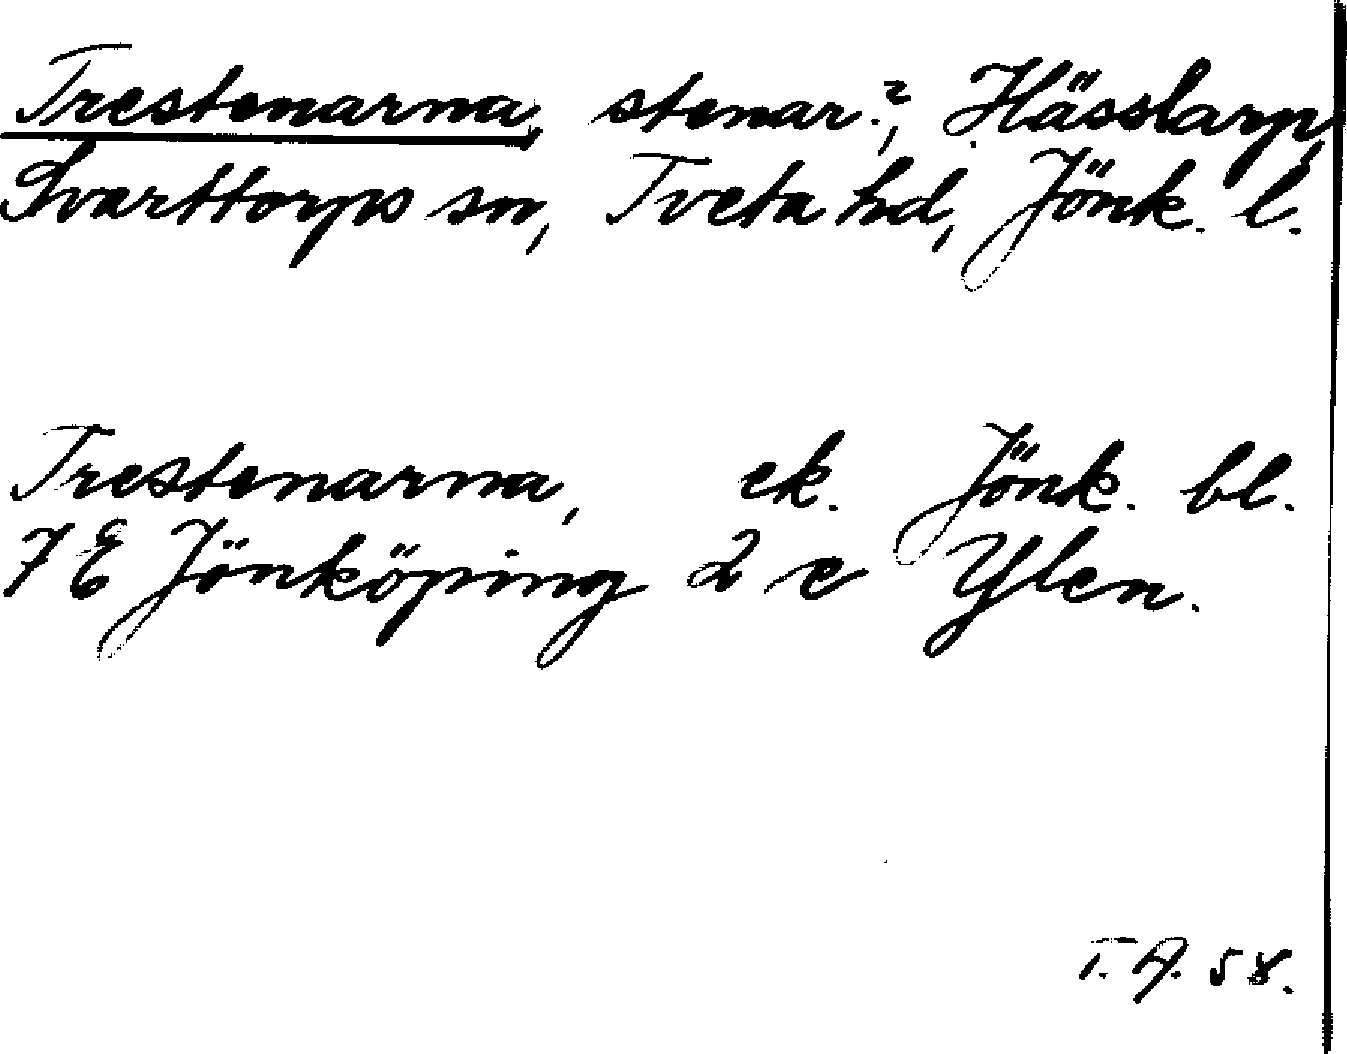 Trestenarna, stenar?, Hässlarp,
Svarttorps sn, Tveta hd, Jönk. l.
Trestenarna, ek. Jönk. bl.
7 E Jönköping 2 c Ylen.
T.A. 58.